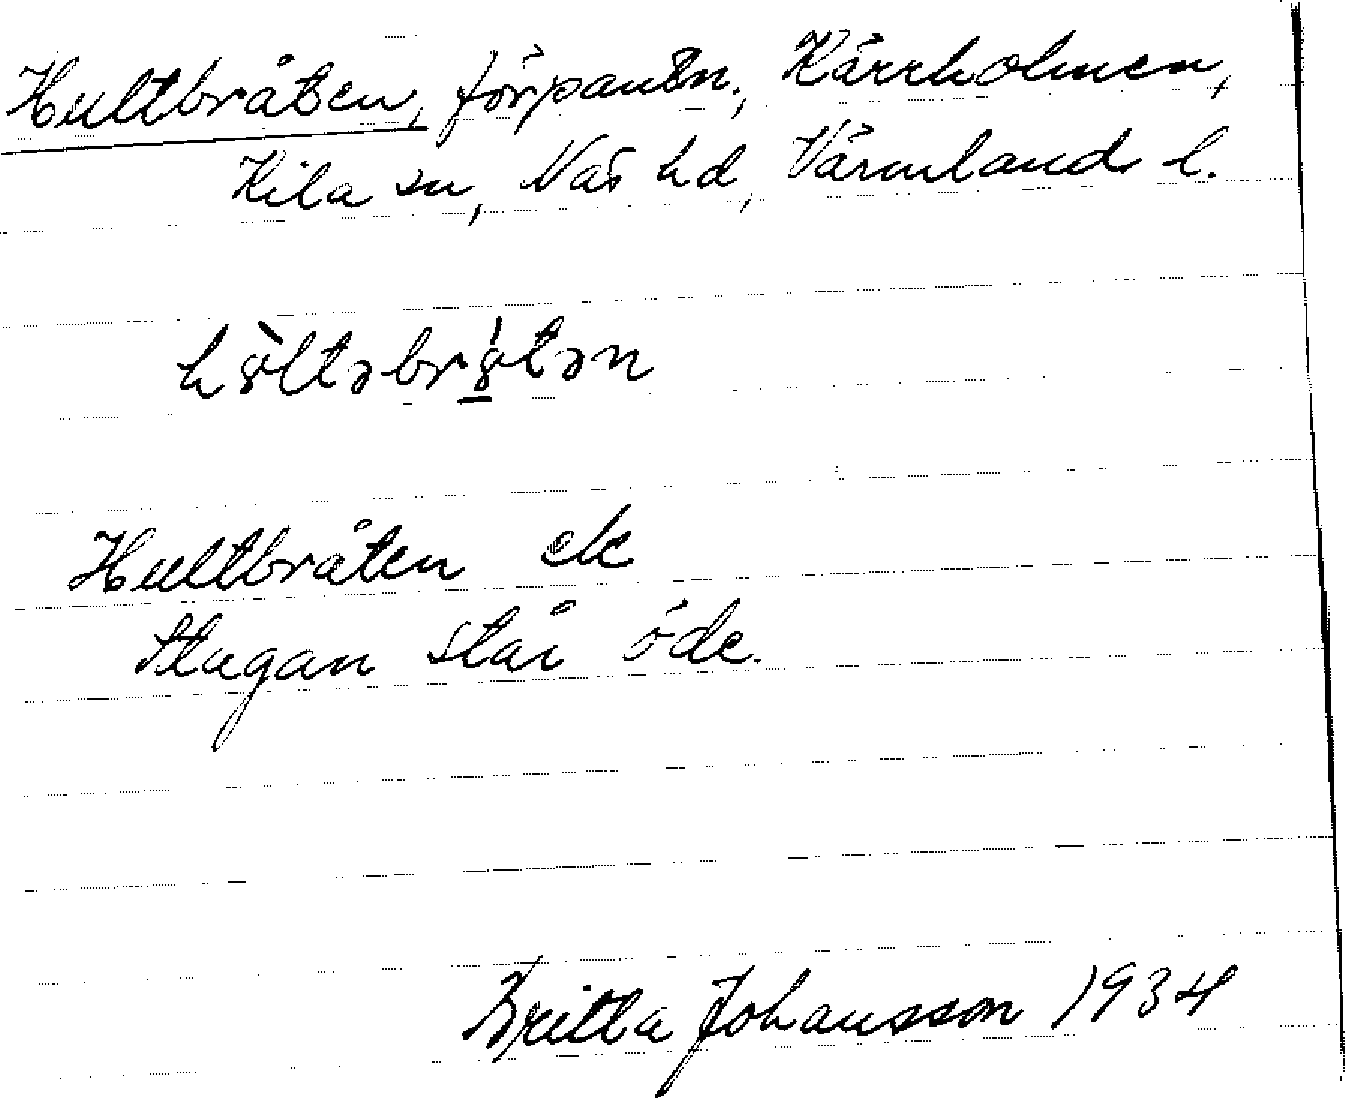 Hultbråten, förpantn., Kärrholmen,
Kila sn, Näs hd, Värmlands l.
hòltəbró̱tən
Hultbråten ek
Stugan står öde.
Britta Johansson 1934